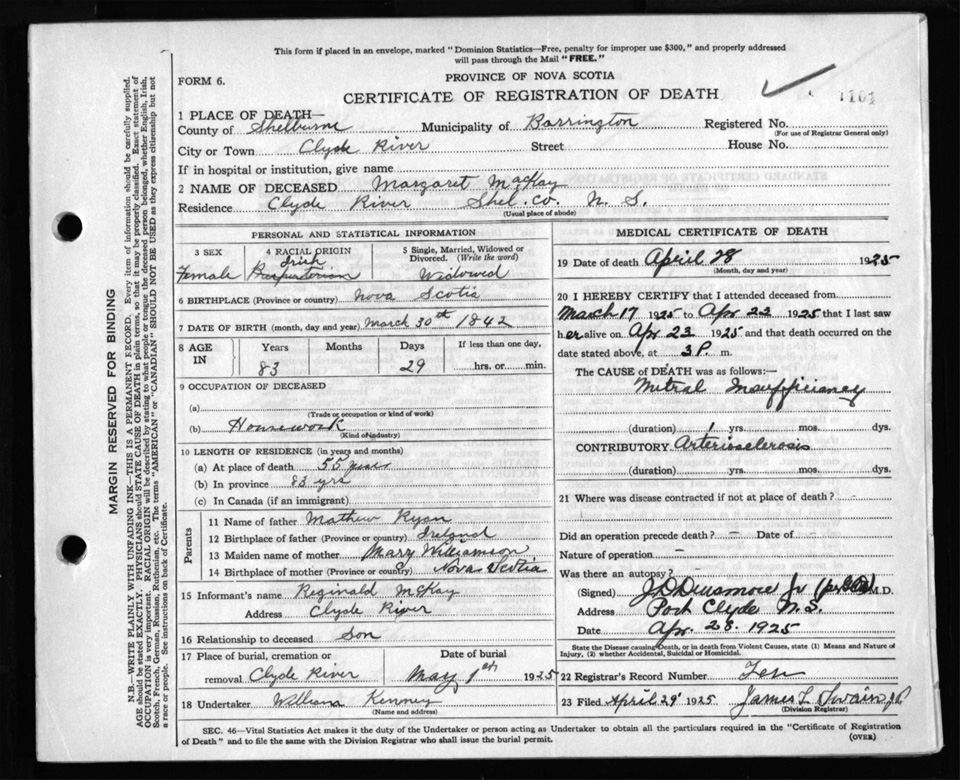 This form if placed in an envelope, marked "Dominion Statistics—Free, penalty for improper use $300," and properly addressed
will pass through the Mail "FREE."
FORM 6.
PROVINCE OF NOVA SCOTIA
CERTIFICATE OF REGISTRATION OF DEATH
1 PLACE OF DEATH—
County of Shelburne Municipality of Barrington Registered No.
(For use of Registrar General only)
City or Town Clyde River Street House No.
If in hospital or institution, give name
2 NAME OF DECEASED Margaret MacKay
Residence Clyde River Shel. co. N. S.
(Usual place of abode)
PERSONAL AND STATISTICAL INFORMATION
3 SEX
Female
4 RACIAL ORIGIN
Irish
5 Single, Married, Widowed or Divorced. (Write the word)
Widowed
6 BIRTHPLACE (Province or country) Nova Scotia
7 DATE OF BIRTH (month, day and year) March 30th 1842
8 AGE IN
Years Months Days If less than one day,
83 29 hrs. or min.
9 OCCUPATION OF DECEASED
(a)
(Trade or occupation or kind of work)
(b) Housework
(Kind of industry)
10 LENGTH OF RESIDENCE (in years and months)
(a) At place of death 55 years
(b) In province 83 yrs
(c) In Canada (if an immigrant)
Parents
11 Name of father Mathew Ryan
12 Birthplace of father (Province or country) Ireland
13 Maiden name of mother Mary Williamson
14 Birthplace of mother (Province or country) Nova Scotia
15 Informant's name Reginald McKay
Address Clyde River
16 Relationship to deceased Son
17 Place of burial, cremation or Date of burial
removal Clyde River May 1 1925
18 Undertaker William Kenney
(Name and address)
MEDICAL CERTIFICATE OF DEATH
19 Date of death April 28 1925
(Month, day and year)
20 I HEREBY CERTIFY that I attended deceased from
March 17 1925 to Apr 22 1925 that I last saw
her alive on Apr 23 1925 and that death occurred on the
date stated above, at 3 P. m.
The CAUSE of DEATH was as follows:—
Mitral Insufficiency
(duration) 1 yrs. mos. dys.
CONTRIBUTORY Arteriosclerosis
(duration) yrs. mos. dys.
21 Where was disease contracted if not at place of death? -
Did an operation precede death? - Date of -
Nature of operation -
Was there an autopsy?
(Signed) J D Densmore Jr M.D.
Address Port Clyde N.S.
Date Apr. 28. 1925
State the Disease causing Death, or in death from Violent Causes, state (1) Means and Nature of
Injury, (2) whether Accidental, Suicidal or Homicidal.
22 Registrar's Record Number Ten
23 Filed April 29 1925 James L Swain
(Division Registrar)
SEC. 46—Vital Statistics Act makes it the duty of the Undertaker or person acting as Undertaker to obtain all the particulars required in the "Certificate of Registration
of Death" and to file the same with the Division Registrar who shall issue the burial permit.
(OVER)
MARGIN RESERVED FOR BINDING
N.B.—WRITE PLAINLY WITH UNFADING INK—THIS IS A PERMANENT RECORD. Every item of information should be carefully supplied.
AGE should be stated EXACTLY. PHYSICIANS should STATE CAUSE OF DEATH in plain terms, so that it may be properly classified. Exact statement of
OCCUPATION is very important. RACIAL ORIGIN will be described by stating to what people or tongue the deceased person belonged, whether English, Irish,
Scotch, French, German, Russian, Ruthenian, etc. The terms "AMERICAN" or "CANADIAN" SHOULD NOT BE USED as they express citizenship but not
a race or people. See instructions on back of Certificate.